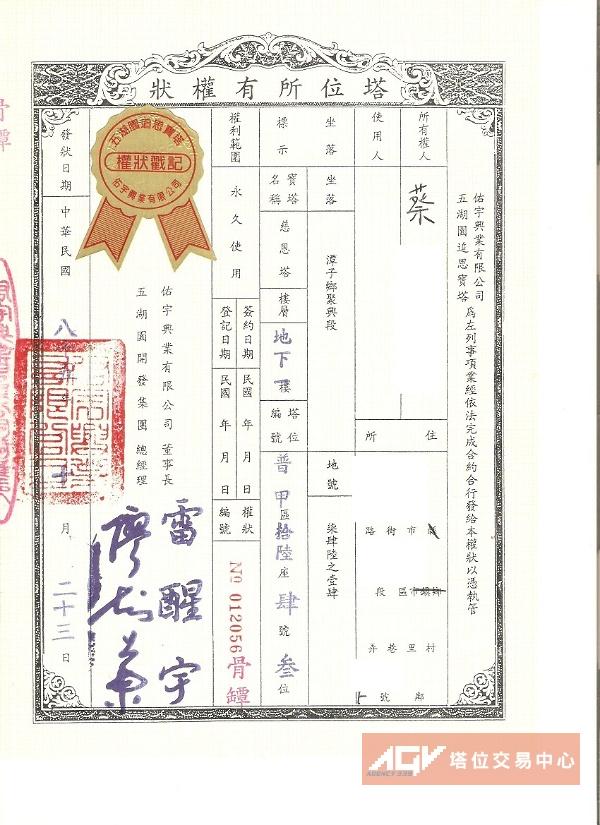 塔位所有權狀
佑宇興業有限公司
五湖園追思寶塔
為左列事項業經依法完成合約合行發給本權狀以憑執管
所有權人
蔡
使用人
住所
縣市
市鎮鄉區
村里
鄰
街路
段
巷弄
號
坐落
標示
坐落
潭子鄉聚興段
地號
柒肆陸之壹肆
寶塔名稱
慈恩塔
樓層
地下一樓
塔位編號
普甲區拾陸座肆號叁位
權利範圍
永久使用
簽約日期
民國 年 月 日
登記日期
民國 年 月 日
權狀編號
No 012056
骨罈
五湖園追思寶塔
權狀戳記
佑宇興業有限公司
佑宇興業有限公司 董事長
雷醒宇
五湖園開發集團 總經理
發狀日期
中華民國
八
月
二十三
日
骨罈
AGV
AGENCY 339
塔位交易中心